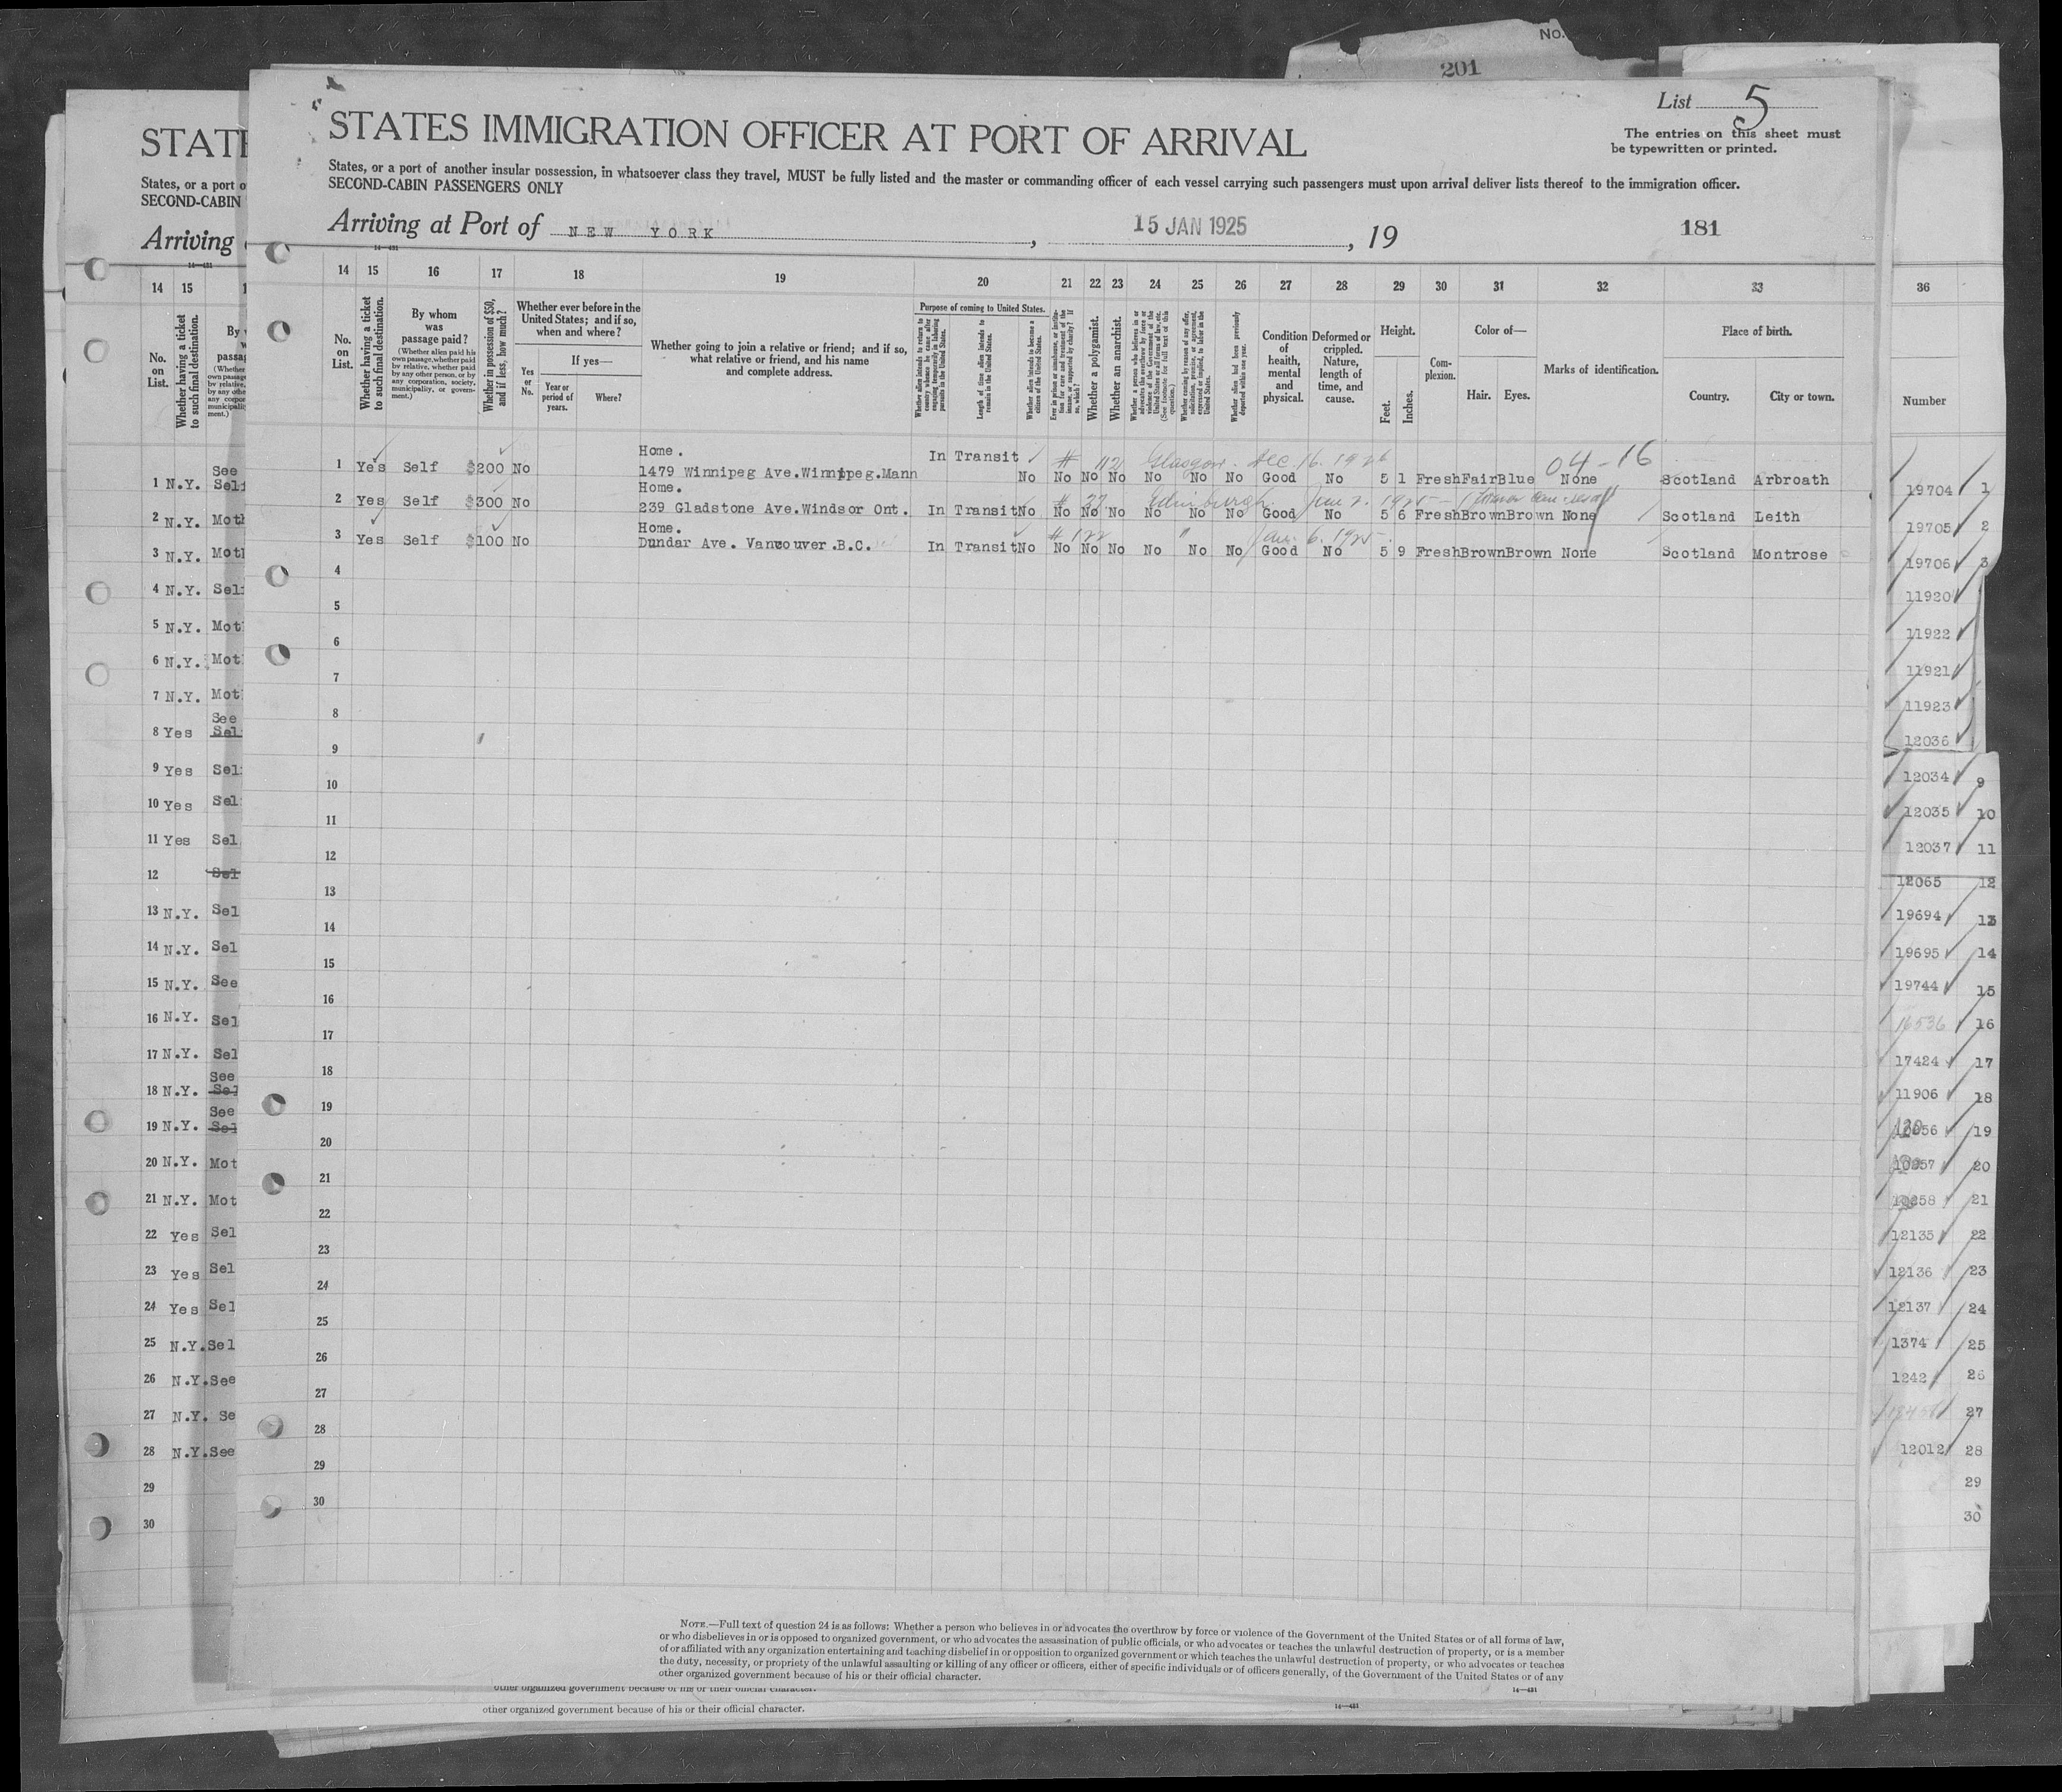 No.
201
List 5
STATES IMMIGRATION OFFICER AT PORT OF ARRIVAL
The entries on this sheet must
be typewritten or printed.
States, or a port of another insular possession, in whatsoever class they travel, MUST be fully listed and the master or commanding officer of each vessel carrying such passengers must upon arrival deliver lists thereof to the immigration officer.
SECOND-CABIN PASSENGERS ONLY
Arriving at Port of NEW YORK , 15 JAN 1925 , 19 181
14—421
14 15 16 17 18 19 20 21 22 23 24 25 26 27 28 29 30 31 32 33
No. on List.
Whether having a ticket to such final destination.
By whom was passage paid?
(Whether alien paid his own passage, whether paid by relative, whether paid by any other person, or by any corporation, society, municipality, or government.)
Whether in possession of $50, and if less, how much?
Whether ever before in the United States; and if so, when and where?
Yes or No.
If yes—
Year or period of years.
Where?
Whether going to join a relative or friend; and if so, what relative or friend, and his name and complete address.
Purpose of coming to United States.
Whether alien intends to return to country whence he came after engaging temporarily in laboring pursuits in the United States.
Length of time alien intends to remain in the United States.
Whether alien intends to become a citizen of the United States.
Ever in prison or almshouse, or institution for care and treatment of the insane, or supported by charity? If so, which?
Whether a polygamist.
Whether an anarchist.
Whether a person who believes in or advocates the overthrow by force or violence of the Government of the United States or all forms of law, etc. (See footnote for full text of this question.)
Whether coming by reason of any offer, solicitation, promise, or agreement, expressed or implied, to labor in the United States.
Whether alien had been previously deported within one year.
Condition of health, mental and physical.
Deformed or crippled. Nature, length of time, and cause.
Height.
Feet. Inches.
Complexion.
Color of—
Hair. Eyes.
Marks of identification.
Place of birth.
Country. City or town.
# 1121 Glasgow. Dec. 16. 1924 04-16
1 Yes Self $200 No Home. 1479 Winnipeg Ave.Winnipeg.Mann In Transit No No No No No No No Good No 5 1 Fresh Fair Blue None Scotland Arbroath
# 27 Edinburgh
2 Yes Self $300 No Home. 239 Gladstone Ave.Windsor Ont. In Transit No No No No No No No Good No 5 6 Fresh Brown Brown None Scotland Leith
# 122 " Jan. 6. 1925
3 Yes Self $100 No Home. Dundar Ave. Vancouver.B.C. In Transit No No No No No No No Good No 5 9 Fresh Brown Brown None Scotland Montrose
4
5
6
7
8
9
10
11
12
13
14
15
16
17
18
19
20
21
22
23
24
25
26
27
28
29
30
NOTE.—Full text of question 24 is as follows: Whether a person who believes in or advocates the overthrow by force or violence of the Government of the United States or of all forms of law,
or who disbelieves in or is opposed to organized government, or who advocates the assassination of public officials, or who advocates or teaches the unlawful destruction of property, or is a member
of or affiliated with any organization entertaining and teaching disbelief in or opposition to organized government or which teaches the unlawful destruction of property, or who advocates or teaches
the duty, necessity, or propriety of the unlawful assaulting or killing of any officer or officers, either of specific individuals or of officers generally, of the Government of the United States or of any
other organized government because of his or their official character.
14—421
other organized government because of his or their official character.
other organized government because of his or their official character.
14—421
STATE
States, or a port o
SECOND-CABIN
Arriving
14—421
14 15
No. on List.
Whether having a ticket to such final destination.
1 N.Y. See Self
2 N.Y. Moth
3 N.Y. Moth
4 N.Y. Self
5 N.Y. Mot
6 N.Y. Mot
7 N.Y. Mot
8 Yes See Sel
9 Yes Sel
10 Yes Sel
11 Yes Sel
12 Sel
13 N.Y. Sel
14 N.Y. Sel
15 N.Y. See
16 N.Y. Sel
17 N.Y. Sel
18 N.Y. See Sel
19 N.Y. See Sel
20 N.Y. Mot
21 N.Y. Mot
22 Yes Sel
23 Yes Sel
24 Yes Sel
25 N.Y. Sel
26 N.Y. See
27 N.Y. Se
28 N.Y. See
29
30
36
Number
19704 1
19705 2
19706 3
11920
11922
11921
11923
12036
12034 9
12035 10
12037 11
12065 12
19694 13
19695 14
19744 15
16536 16
17424 17
11906 18
19
20
21
12135 22
12136 23
12137 24
1374 25
1242 26
27
12012 28
29
30